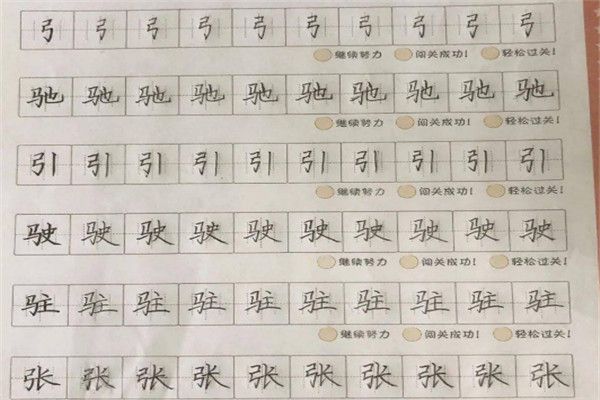 弓弓弓弓弓弓弓弓弓弓
继续努力 闯关成功! 轻松过关!
驰驰驰驰驰驰驰驰驰驰
继续努力 闯关成功! 轻松过关!
引引引引引引引引引引
继续努力 闯关成功! 轻松过关!
驶驶驶驶驶驶驶驶驶驶
继续努力 闯关成功! 轻松过关!
驻驻驻驻驻驻驻驻驻驻
继续努力 闯关成功! 轻松过关!
张张张张张张张张张张